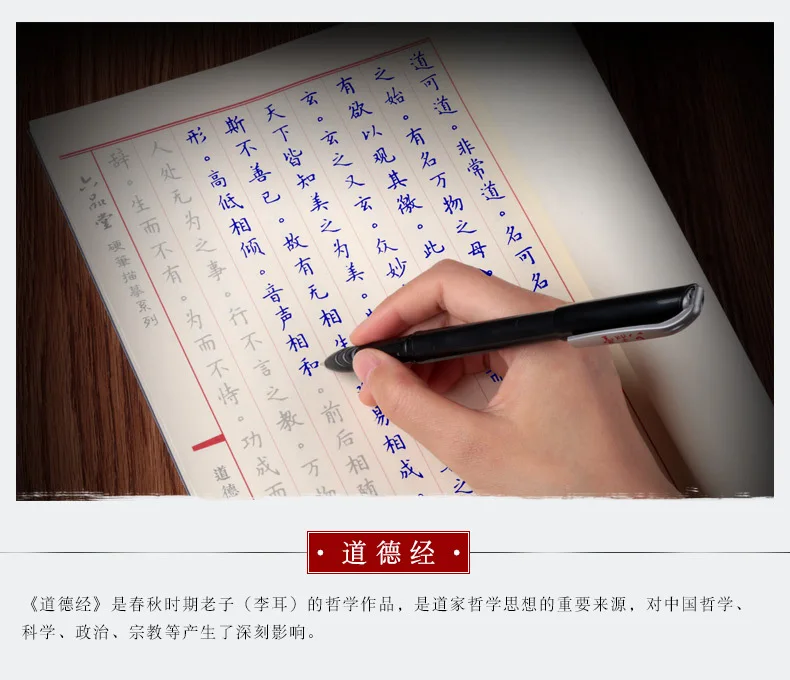 道可道。非常道。名可名
之始。有名万物之母。
有欲以观其徼。此
玄。玄之又玄。众妙
天下皆知美之为美。
斯不善已。故有无相生
易相成
形。高低相倾。音声相和。前后相随
人处无为之事。行不言之教。万物
辞。生而不有。为而不恃。功成而
六品堂 硬筆描摹系列
道德
道德经
《道德经》是春秋时期老子（李耳）的哲学作品，是道家哲学思想的重要来源，对中国哲学、
科学、政治、宗教等产生了深刻影响。